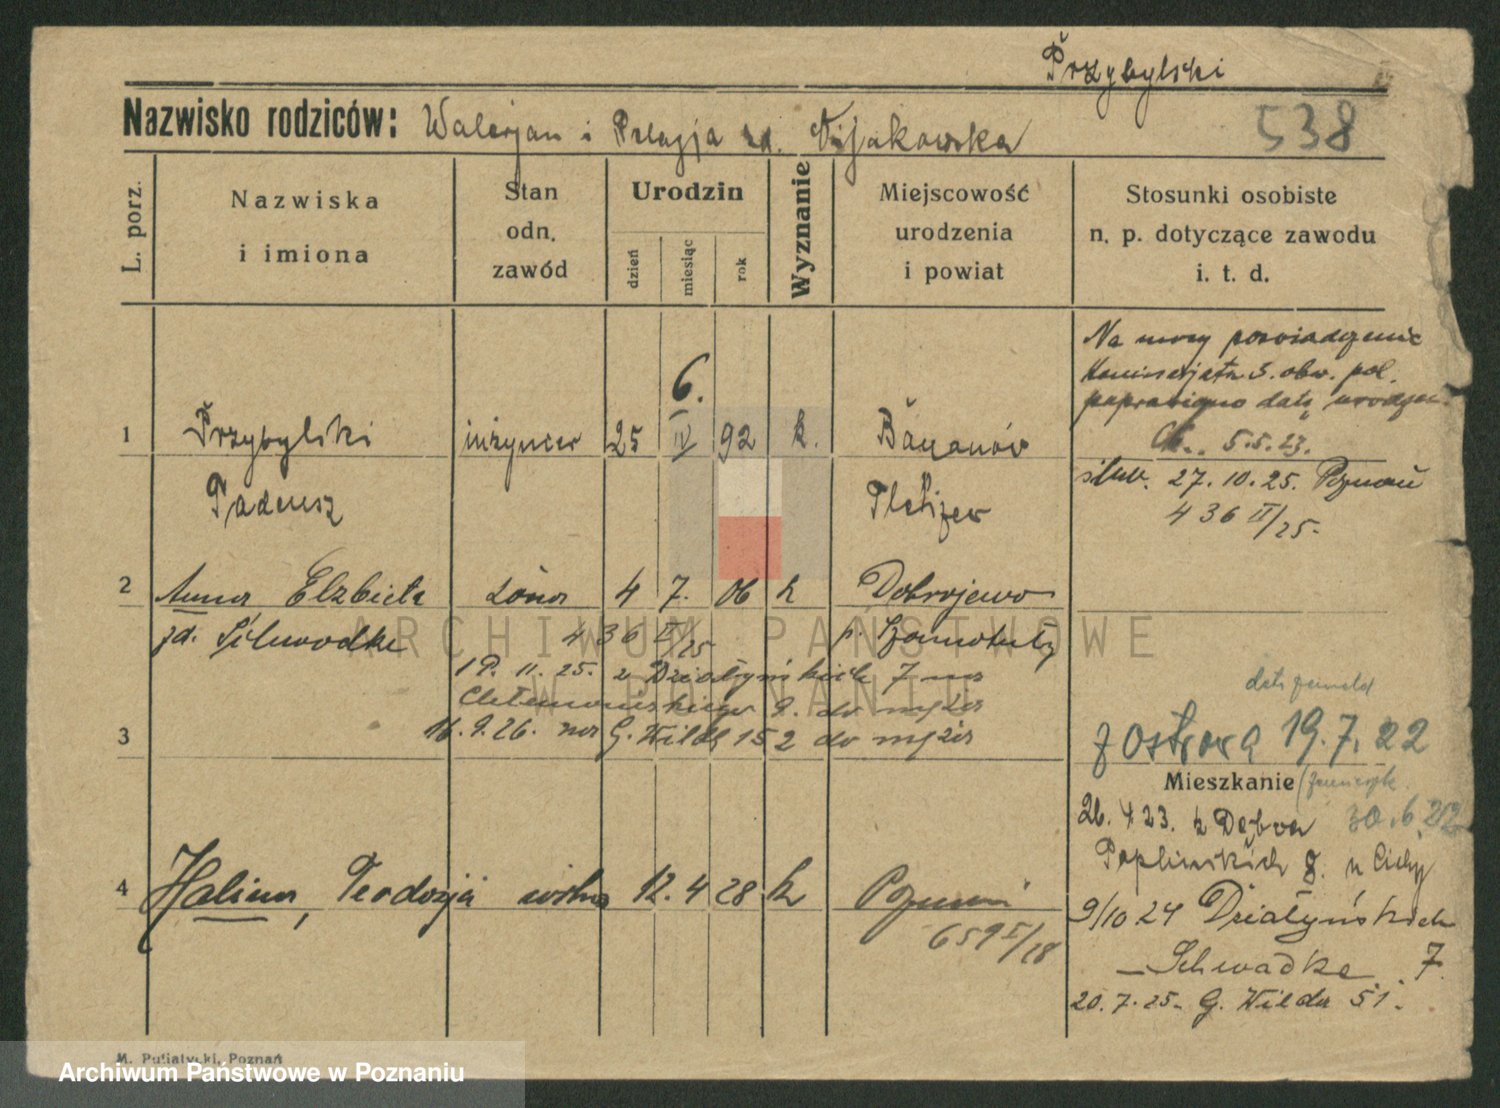 Przybylski
Nazwisko rodziców: Walerjan i Pelagja zd.
538
L. porz.
Nazwiska
i imiona
Stan
odn.
zawód
Urodzin
dzień
miesiąc
rok
Wyznanie
Miejscowość
urodzenia
i powiat
Stosunki osobiste
n. p. dotyczące zawodu
i. t. d.
Na mocy poświadczenia
Komisarjatu 5. obw. pol.
poprawiono datę urodzen.
5.5.23.
6.
1 Przybylski inżynier 25 IV 92 k.
Tadeusz
ślub. 27.10.25. Poznań
436 II/25-
2 Anna Elżbieta żona 4 7. 06 k Dobrojewo
zd. p. Szamotuły
436 II/25
1P. 11. 25. z Działyńskich 7 na
Chełmońskiego 9. do męża
3 16.9.26. na G. Wilda 152 do męża
z Ostrowa 19.7.22
Mieszkanie
30.6.22
26. 4. 23. z Dębna
8. u Cichy
4 Halina, Teodozja 12. 4 28 k Poznań
659 I/28
9/10 24 Działyńskich
7
20.7.25- G. Wilda 51.
M. Putiatycki, Poznań
ARCHIWUM PAŃSTWOWE
W POZNANIU
Archiwum Państwowe w Poznaniu